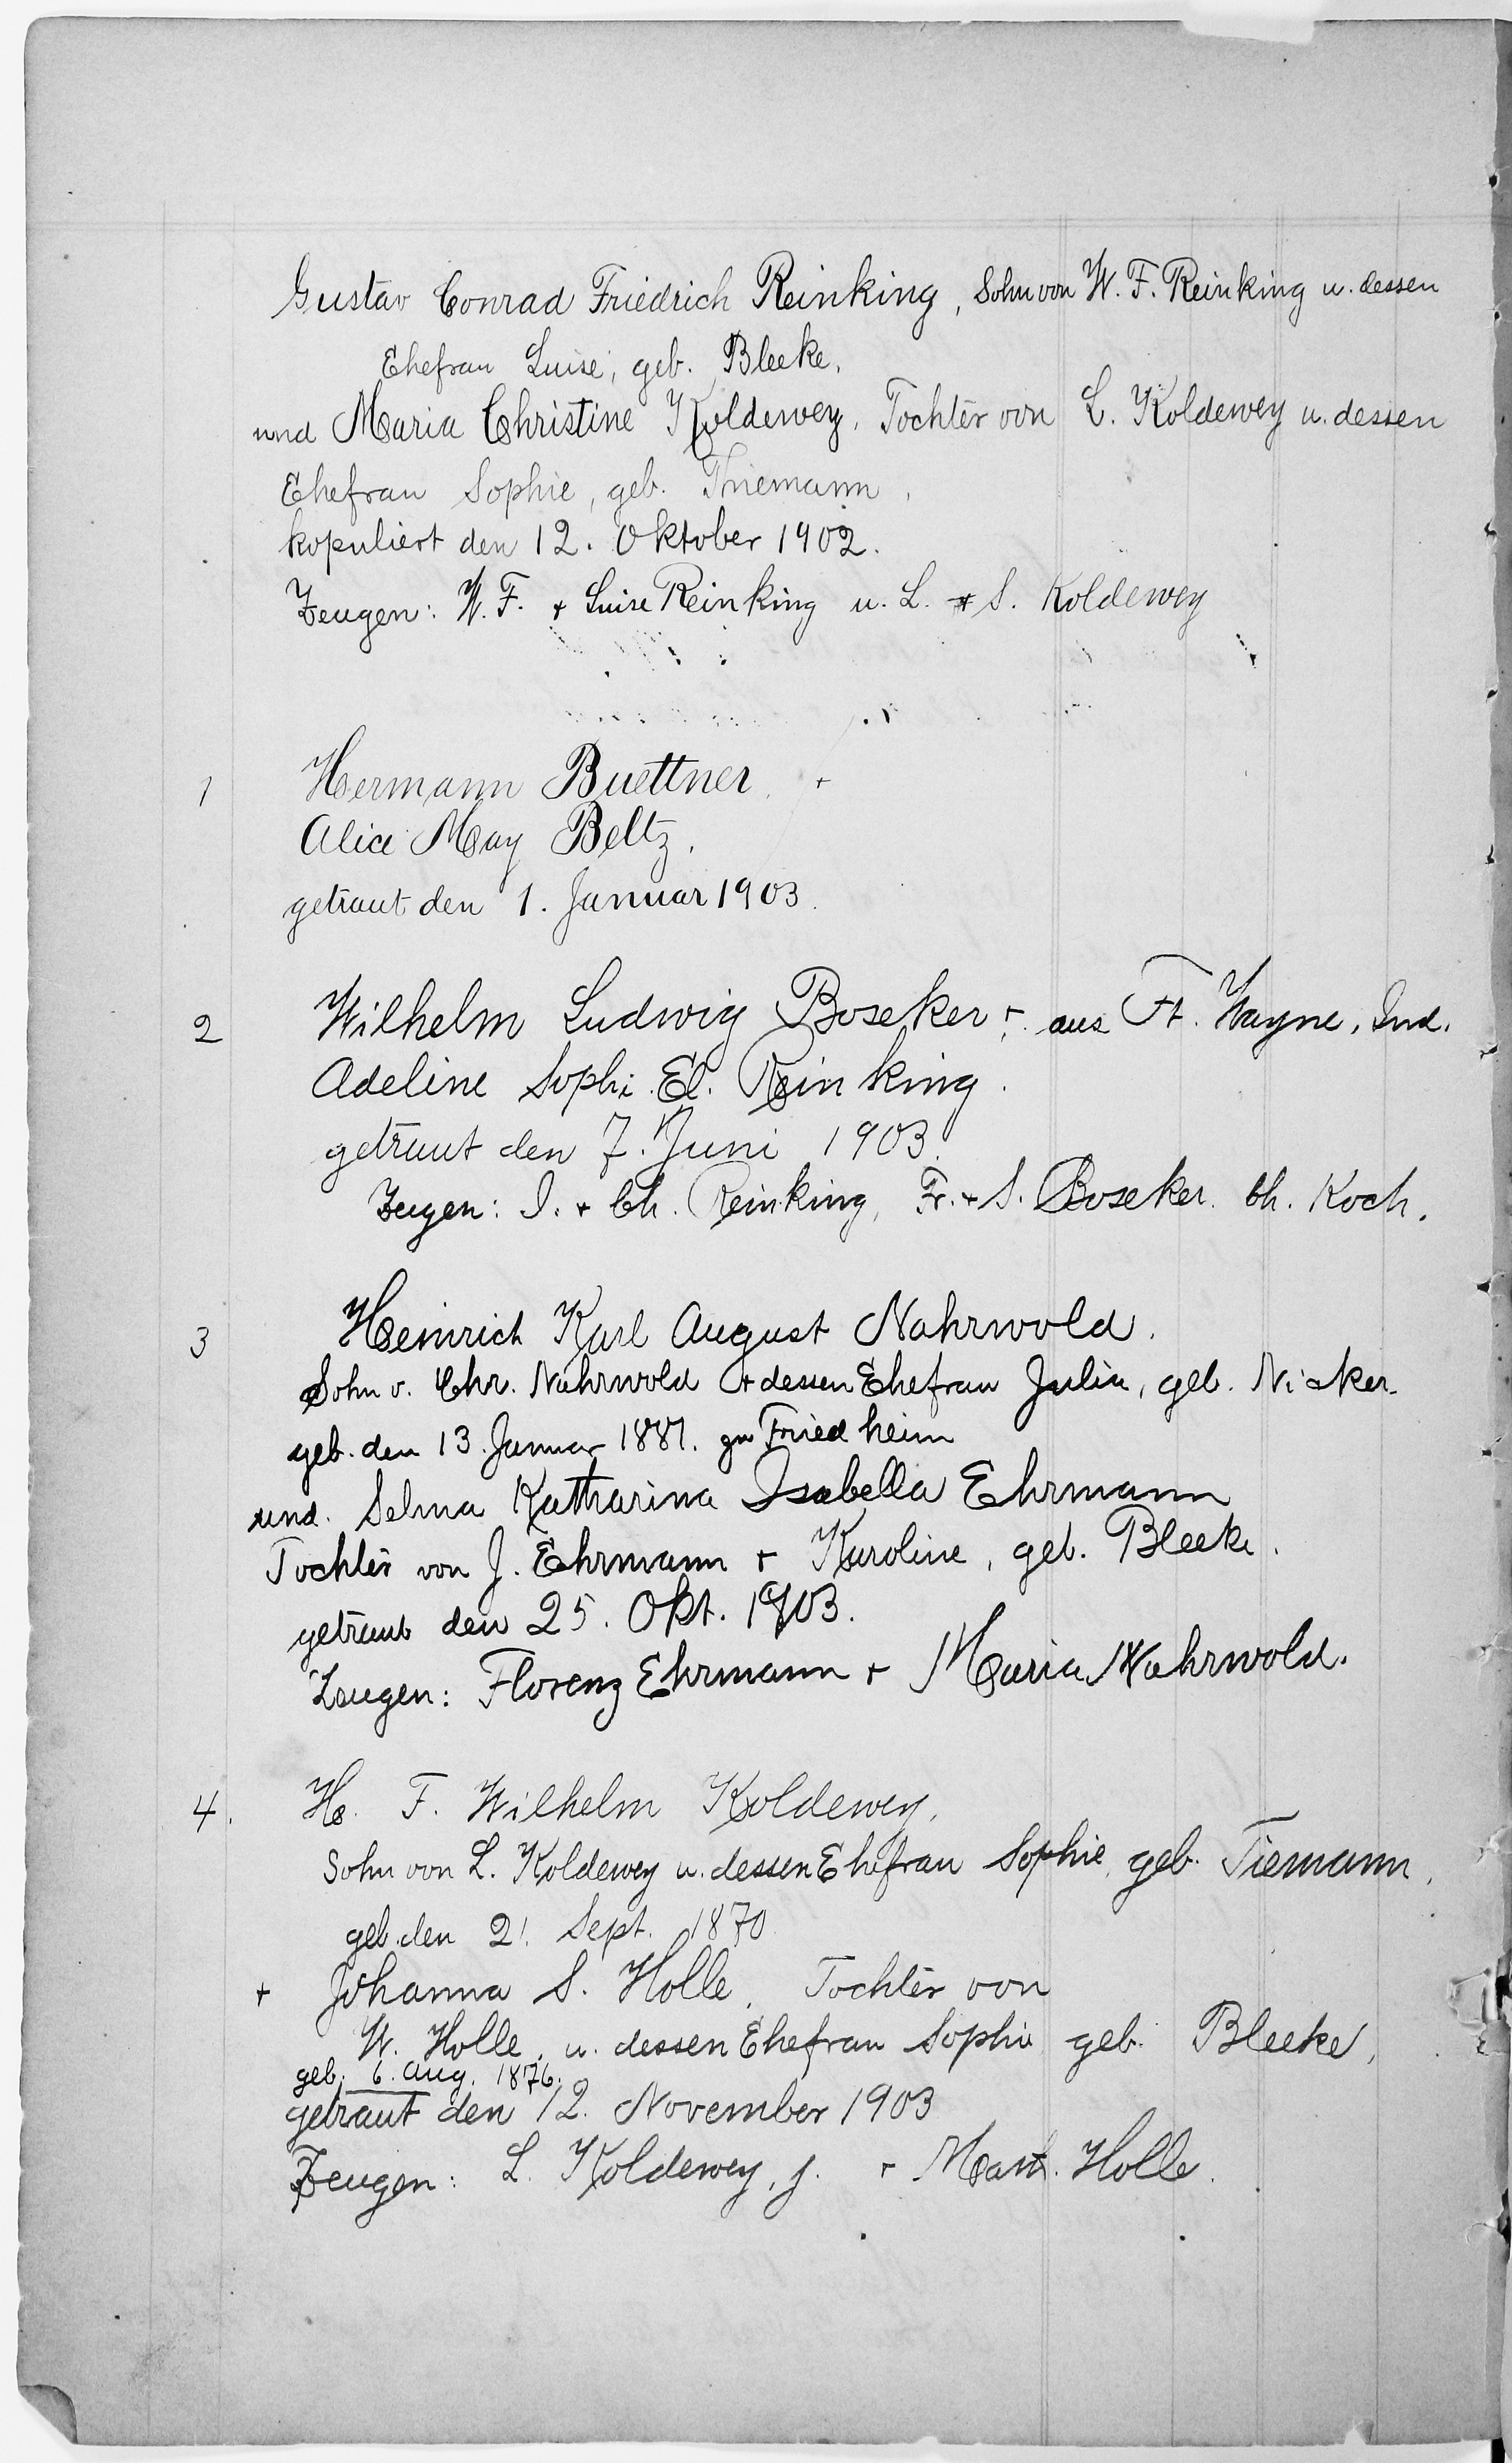 Gustav Conrad Friedrich Reinking, Sohn von W. F. Reinking u. dessen
Ehefrau Luise, geb. Bleeke,
und Maria Christine Koldewey, Tochter von L. Koldewey u. dessen
Ehefrau Sophie, geb. Thiemann,
kopuliert den 12. Oktober 1902.
Zeugen: W. F. + Luise Reinking u. L. + S. Koldewey
1 Hermann Buettner. +
Alice May Beltz.
getraut den 1. Januar 1903.
2 Wilhelm Ludwig Boseker + aus Ft. Wayne, Ind.
Adeline Soph. El. Reinking.
getraut den 7. Juni 1903.
Zeugen: I. + Ch. Reinking, Fr. + S. Boseker. Ch. Koch.
3 Heinrich Karl August Nahrwold.
Sohn v. Chr. Nahrwold + dessen Ehefrau Julia, geb.
geb. den 13. Januar 1881. zu Friedheim
und. Selma Katharina Isabella Ehrmann
Tochter von J. Ehrmann + Karoline, geb. Bleeke.
getraut den 25. Okt. 1903.
Zeugen: Florenz Ehrmann + Maria Nahrwold.
4. H. F. Wilhelm Koldewey,
Sohn von L. Koldewey u. dessen Ehefrau Sophie, geb. Tiemann,
geb. den 21. Sept. 1870
+ Johanna S. Holle, Tochter von
W. Holle, u. dessen Ehefrau Sophie geb. Bleeke,
geb. 6. Aug. 1876.
getraut den 12. November 1903
Zeugen: L. Koldewey, j. + Mart. Holle.